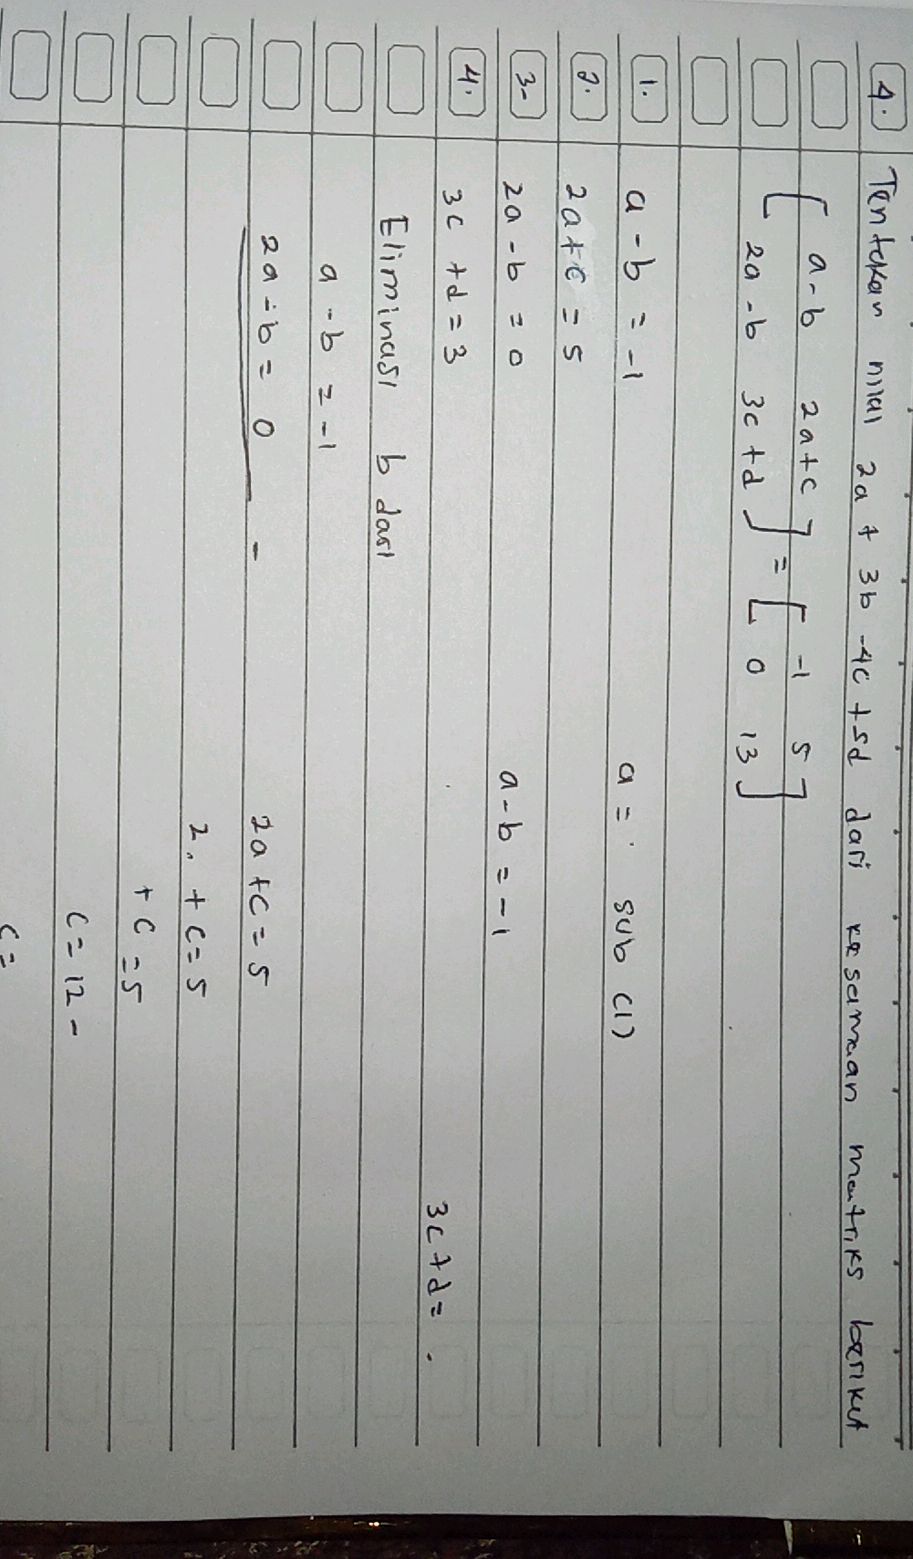 4. Tentukan nilai 2a + 3b -4c +5d dari kesamaan matriks berikut
[ a-b 2a+c ] = [ -1 5 ]
[ 2a-b 3c+d ] [ 0 13 ]
1. a-b = -1 a = sub (1)
2. 2a+c = 5
3- 2a-b = 0 a-b = -1
4. 3c +d = 3 3c+d =
Eliminasi b dari
a-b = -1
2a-b = 0 - 2a+c = 5
2. +c = 5
+c = 5
c = 12 -
c =